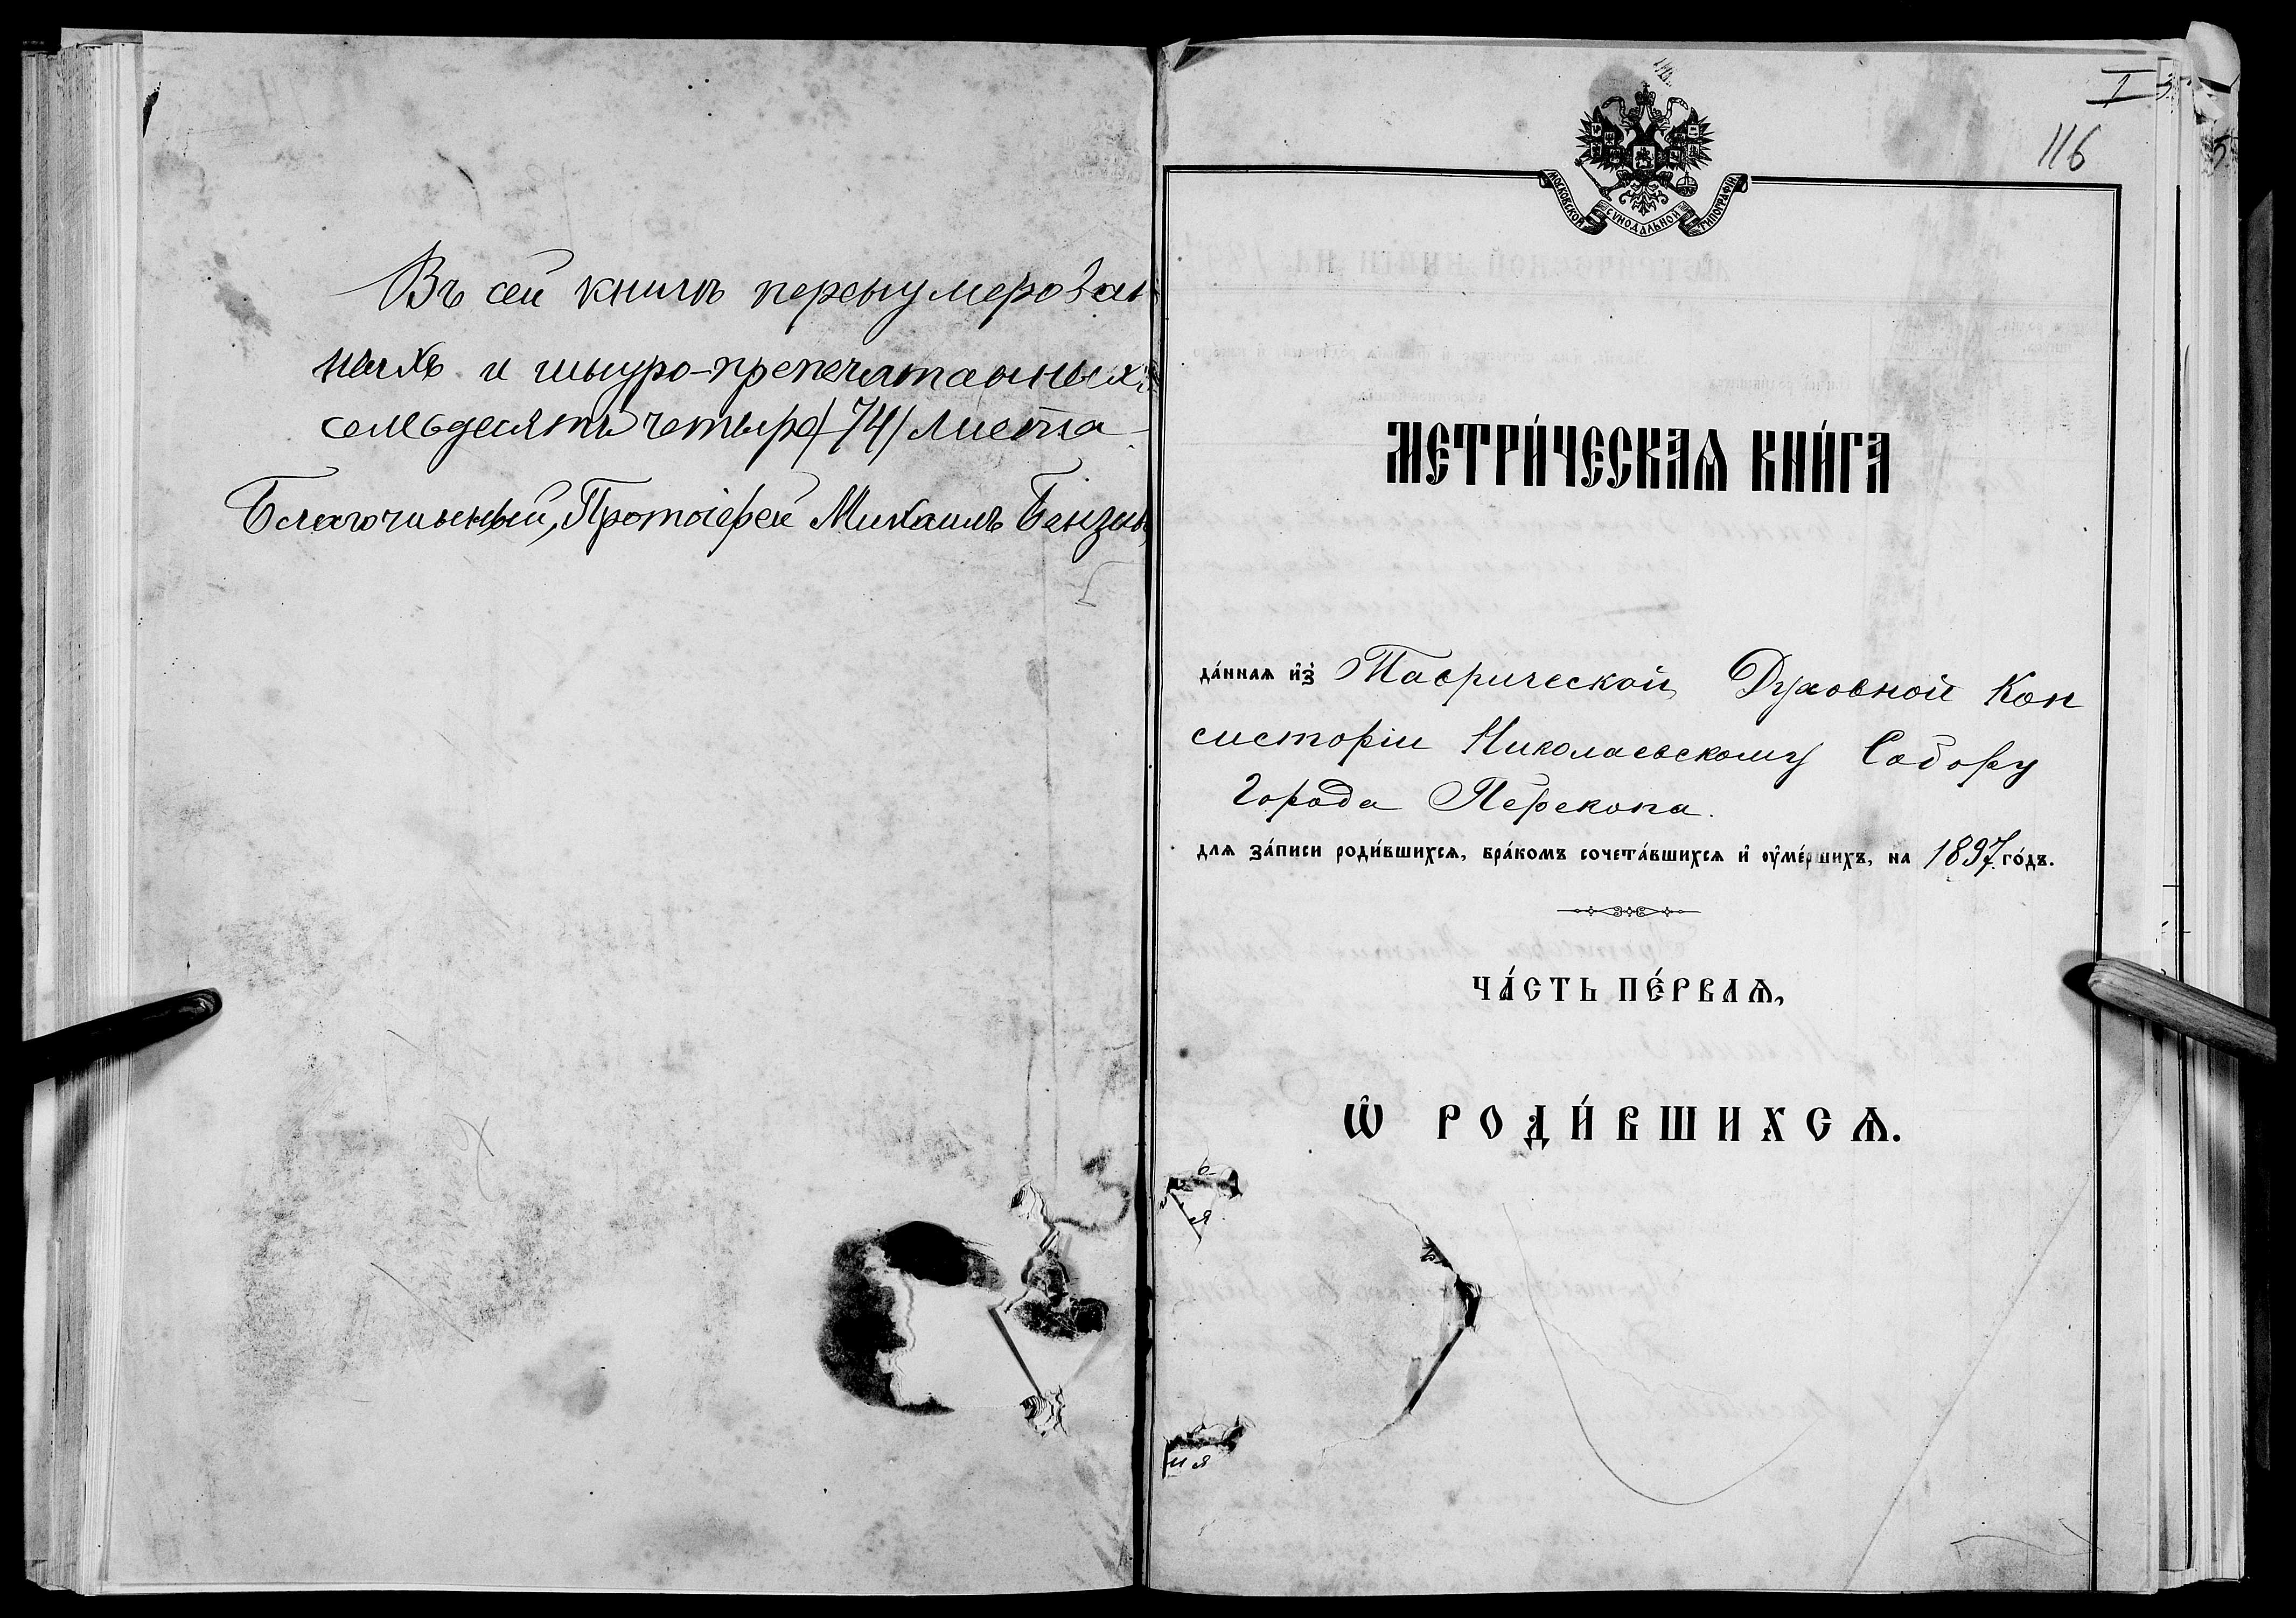 Въ сей книгѣ перенумерован
ныхъ и шнуро-препечатанныхъ
семьдесятъ четыре /74/ листа
Благочинный, Протоіерей Михаилъ
I
116
МОСКОВСКОЙ СѴНОДАЛЬНОЙ ТИПОГРАФІИ
МЕТРИ́ЧЕСКАѦ КНИ́ГА
да́ннаѧ и҆з̾ Таврической Духовной Кон
систоріи Николаевскому Собору
Города Перекопа.
длѧ за́писи роди́вшихсѧ, бра́комъ сочета́вшихсѧ и҆ ᲂу҆ме́ршихъ, на 1897 го́дъ.
ЧА́СТЬ ПЕ́РВАѦ,
Ѡ҆ РОДИ́ВШИХСѦ.
ь
ся
ия